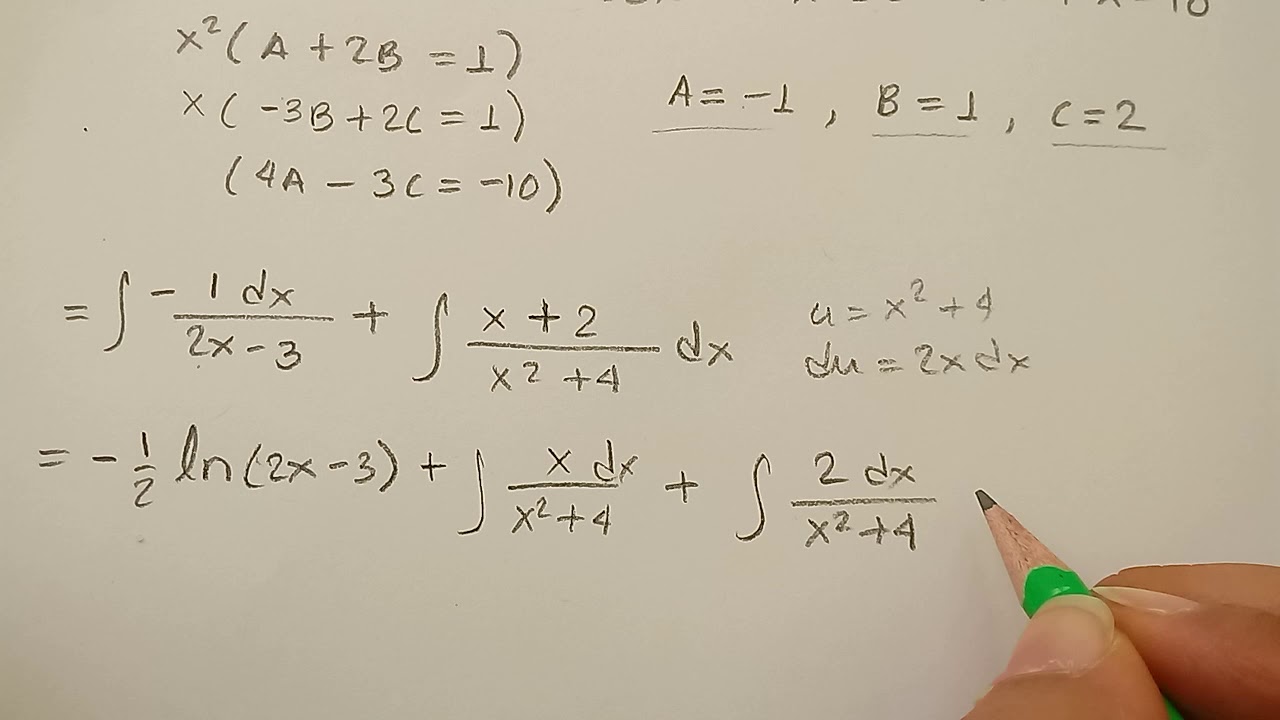 x - 10
x²(A + 2B = 1)
x(-3B + 2C = 1)
(4A - 3C = -10)
A = -1, B = 1, C = 2
= ∫ - 1 dx / 2x - 3 + ∫ x + 2 / x² + 4 dx
u = x² + 4
du = 2x dx
= - 1/2 ln(2x - 3) + ∫ x dx / x² + 4 + ∫ 2 dx / x² + 4